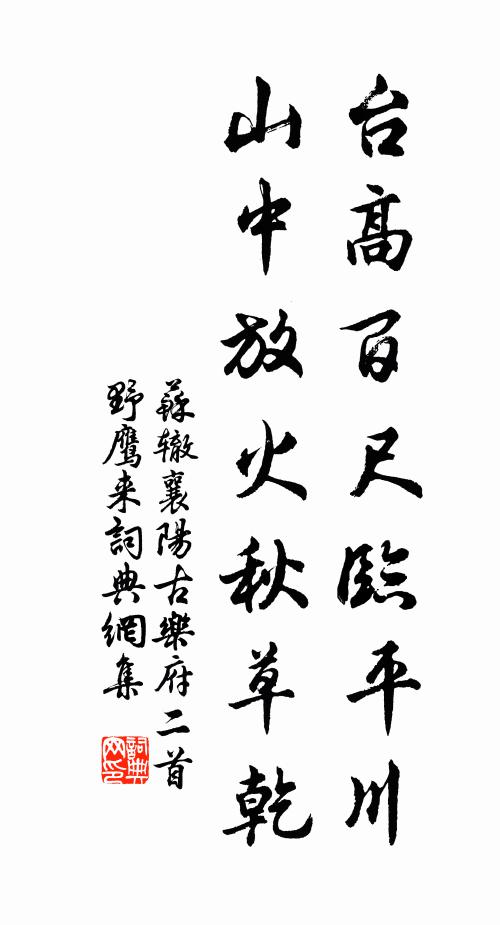 台高百尺臨平川
山中放火秋草乾
蘇辙襄陽古樂府二首
野鹰来詞典網集
詞典網印